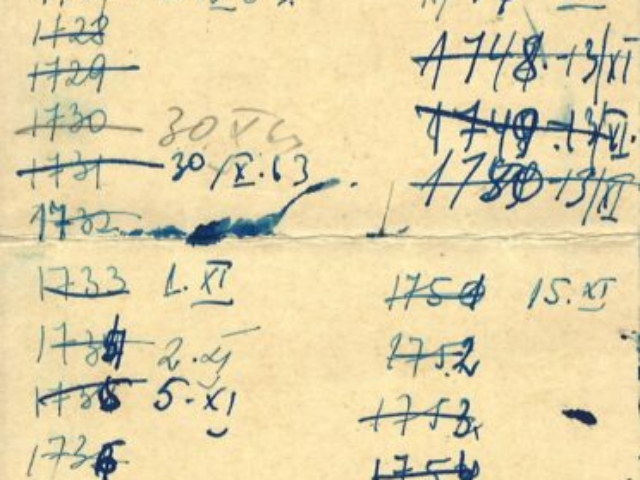 1728
1729
1730 30.XI
1731 30/X.63
1732
1733 1.XI
1734 2.XI
1735 5.XI
1736
1748.-13/XI
1749.-13/XI.
1750-13/XI
1751 15.XI
1752
1753
1754